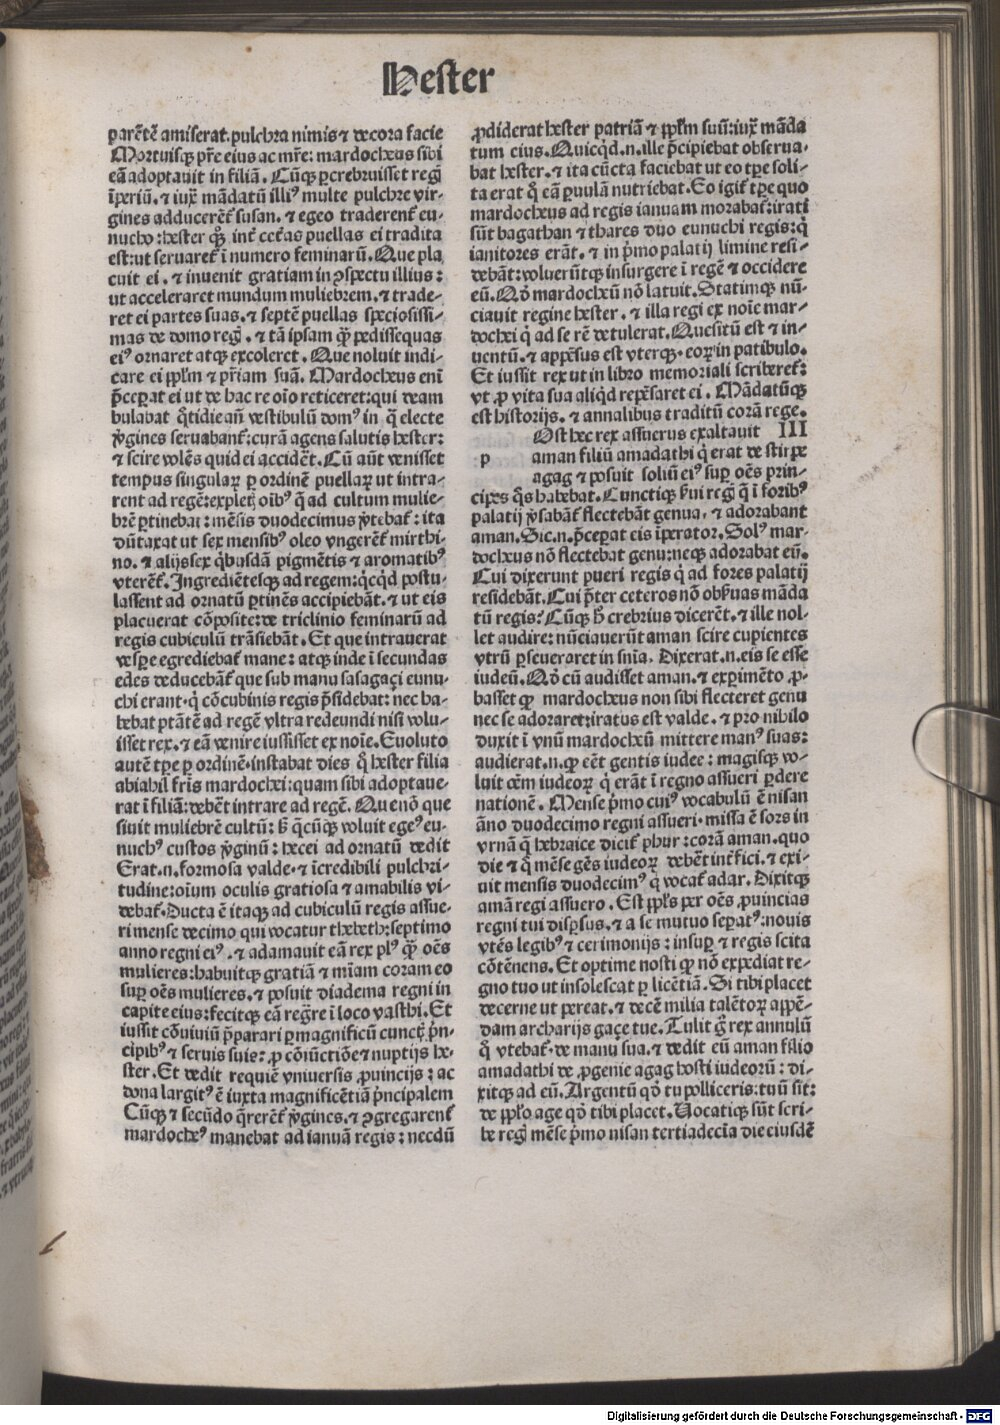 Hester
parētē amiserat. pulchra nimis ⁊ decora facie
Mortuisqꝫ pr̄e eius ac mr̄e: mardocheus sibi
eā adoptauit in filiā. Cūqꝫ ꝑcrebruisset reg̃
īꝑiū. ⁊ iux̄ mādatū illiꝰ multe pulchre vir-
gines adducerēt̄ susan. ⁊ egeo traderent̄ eu-
nucho: hester qꝫ̄ int̄ cet̄as puellas ei tradita
est: ut seruaret̄ ī numero feminarū. Que pla
cuit ei. ⁊ inuenit gratiam in ꝯspectu illius:
ut acceleraret mundum muliebrem. ⁊ trade-
ret ei partes suas. ⁊ septē puellas speciosissi-
mas de domo reg̃. ⁊ tā ipsam qꝫ̄ pedissequas
eiꝰ ornaret atqꝫ excoleret. Que noluit indi-
care ei pplm̄ ⁊ pr̄iam suā. Mardocheus eni
p̄ceꝑat ei ut de hac re oīo reticeret: qui deam
bulabat q̄tidie an̄ vestibulū domꝰ in q̄ electe
v̄gines seruabant̄: curā agens salutis hester:
⁊ scire volēs quid ei accidēt. Cū aūt venisset
tempus singularꝝ ꝑ ordinē puellarꝝ ut intra-
rent ad regē: expletꝭ oībꝰ q̄ ad cultum mulie-
brē ꝑtinebāt: mēsis duodecimus v̄tebat̄: ita
dūtaxat ut sex mensibꝰ oleo vngerēt̄ mirthi-
no. ⁊ alijs sex q̇busdā pigmētis ⁊ aromatibꝰ
vterēt̄. Ingrediētesqꝫ ad regem: q̇cq̇d postu-
lassent ad ornatū ꝑtinēs accipiebāt. ⁊ ut eis
placuerat cōposite: de triclinio feminarū ad
regis cubiculū trāsiebāt. Et que intrauerat
vesꝑe egrediebat̄ mane: atqꝫ inde ī secundas
edes deducebāt̄ que sub manu sasagaçi eunu-
chi erant. q̇ cōcubinis regis p̄sidebat: nec ha-
bebat ptātē ad regē vltra redeundi nisi volu-
isset rex. ⁊ eā venire iussisset ex noīe. Euoluto
autē tꝑe ꝑ ordinē. instabat dies q̄ hester filia
abiahil fr̄is mardochei: quam sibi adoptaue-
rat ī filiā: debēt intrare ad regē. Que nō que
siuit muliebrē cultū: sꝫ q̄cūqꝫ voluit egeꝰ eu-
nuchꝰ custos v̄ginū: hec ei ad ornatū dedit
Erat. n. formosa valde. ⁊ īcredibili pulchri-
tudine: oīum oculis gratiosa ⁊ amabilis vi-
debat̄. Ducta ē itaqꝫ ad cubiculū regis assue-
ri mense decimo qui vocatur thebeth: septimo
anno regni eiꝰ. ⁊ adamauit eā rex plꝰ qꝫ̄ oēs
mulieres: habuitqꝫ gratiā ⁊ mīam coram eo
suꝑ oēs mulieres. ⁊ posuit diadema regni in
capite eius: fecitqꝫ eā reg̃re ī loco vasthi. Et
iussit cōuiuiū p̄parari ꝑmagnificū cunctꝭ p̄n-
cipibꝰ ⁊ seruis suis: ꝓ cōiūctiōe ⁊ nuptijs he-
ster. Et dedit requiē vniuersis ꝓuincijs: ac
dona largitꝰ ē iuxta magnificētiā p̄ncipalem
Cūqꝫ ⁊ secūdo q̄rerēt̄ v̄gines. ⁊ ꝯgregarent̄
mardocheꝰ manebat ad ianuā regis: necdū
ꝓdiderat hester patriā ⁊ pplm̄ suū: iux̄ māda
tum eius. Quicq̇d. n. ille p̄cipiebat obserua-
bat hester. ⁊ ita cūcta faciebat ut eo tꝑe soli-
ta erat q̄ eā ꝑuulā nutriebat. Eo igit̄ tꝑe quo
mardocheus ad regis ianuam morabat̄: irati
sūt bagathan ⁊ thares duo eunuchi regis: q̇
ianitores erāt. ⁊ in p̄mo palatij limine resi-
debāt: voluerūtqꝫ insurgere ī regē ⁊ occidere
eū. Qd̄ mardocheū nō latuit. Statimqꝫ nū-
ciauit regine hester. ⁊ illa regi ex noīe mar-
dochei q̇ ad se rē detulerat. Quesitū est ⁊ in-
uentū. ⁊ appēsus est vterqꝫ. eorꝝ in patibulo.
Et iussit rex ut in libro memoriali scriberet̄:
vt ꝓ vita sua aliq̇d repēsaret ei. Mādatūqꝫ
est historijs. ⁊ annalibus traditū corā rege.
Ost hec rex assuerus exaltauit III
p aman filiū amadathi q̇ erat de stirpe
agag ⁊ posuit soliū eiꝰ suꝑ oēs prin-
cipes q̄s habebat. Cunctiqꝫ s̄ui reg̃ q̇ ī foribꝰ
palatij v̄sabāt̄ flectebāt genua. ⁊ adorabant
aman. Sic. n. p̄ceꝑat eis īꝑator. Solꝰ mar-
docheus nō flectebat genu: neqꝫ adorabat eū.
Cui dixerunt pueri regis q̇ ad fores palatij
residebāt. Cui p̄ter ceteros nō obs̄uas māda
tū regis? Cūqꝫ h̄ crebrius dicerēt. ⁊ ille nol-
let audire: nūciauerūt aman scire cupientes
vtrū ꝑseueraret in snīa. Dixerat. n. eis se esse
iudeū. Qd̄ cū audisset aman. ⁊ exꝑimēto ꝓ-
basset ꝙ mardocheus non sibi flecteret genu
nec se adoraret: iratus est valde. ⁊ pro nibilo
duxit ī vnū mardocheū mittere manꝰ suas:
audierat. n. ꝙ eēt gentis iudee: magisqꝫ vo-
luit oēm iudeorꝝ q̇ erāt ī regno assueri ꝑdere
nationē. Mense p̄mo cuiꝰ vocabulū ē nisan
āno duodecimo regni assueri. missa ē sors in
vrnā q̄ hebraice dicit̄ phur: corā aman. quo
die ⁊ q̄ mēse gēs iudeorꝝ debēt int̄fici. ⁊ exi-
uit mensis duodecimꝰ q̇ vocat̄ adar. Dixitqꝫ
amā regi assuero. Est ppl̄s per oēs ꝓuincias
regni tui disꝑsus. ⁊ a se mutuo seꝑatꝰ: nouis
vtēs legibꝰ ⁊ cerimonijs: insuꝑ ⁊ regis scita
cōtēnens. Et optime nosti ꝙ nō expediat re-
gno tuo ut insolescat ꝑ licētiā. Si tibi placet
decerne ut pereat. ⁊ decē milia talētorꝝ appē-
dam archarijs gaçe tue. Tulit g̊ rex annulū
q̊ vtebat̄. de manu sua. ⁊ dedit eū aman filio
amadathi de ꝓgenie agag hosti iudeorū: di-
xitqꝫ ad eū. Argentū qd̄ tu polliceris: tuū sit:
de pplo age qd̄ tibi placet. Uocatiqꝫ sūt scri-
be reg̃ mēse p̄mo nisan tertiadecīa die eiusdē
Digitalisierung gefördert durch die Deutsche Forschungsgemeinschaft - DFG